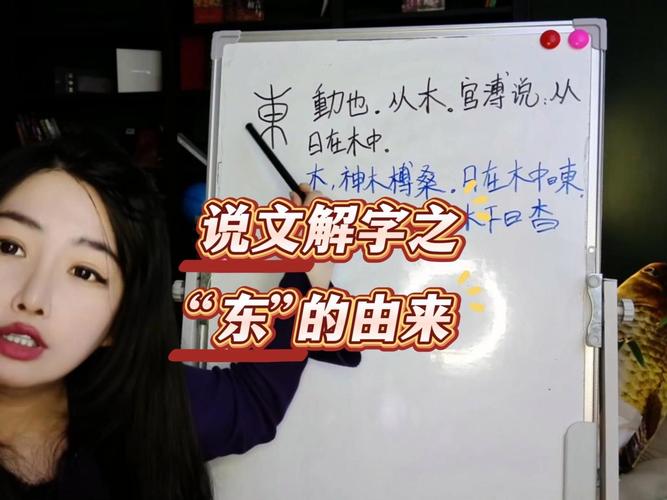 東
動也。从木。官溥说:从
日在木中.
木,神木榑桑。日在木中曰東.
木下曰杳
说文解字之
“东”的由来